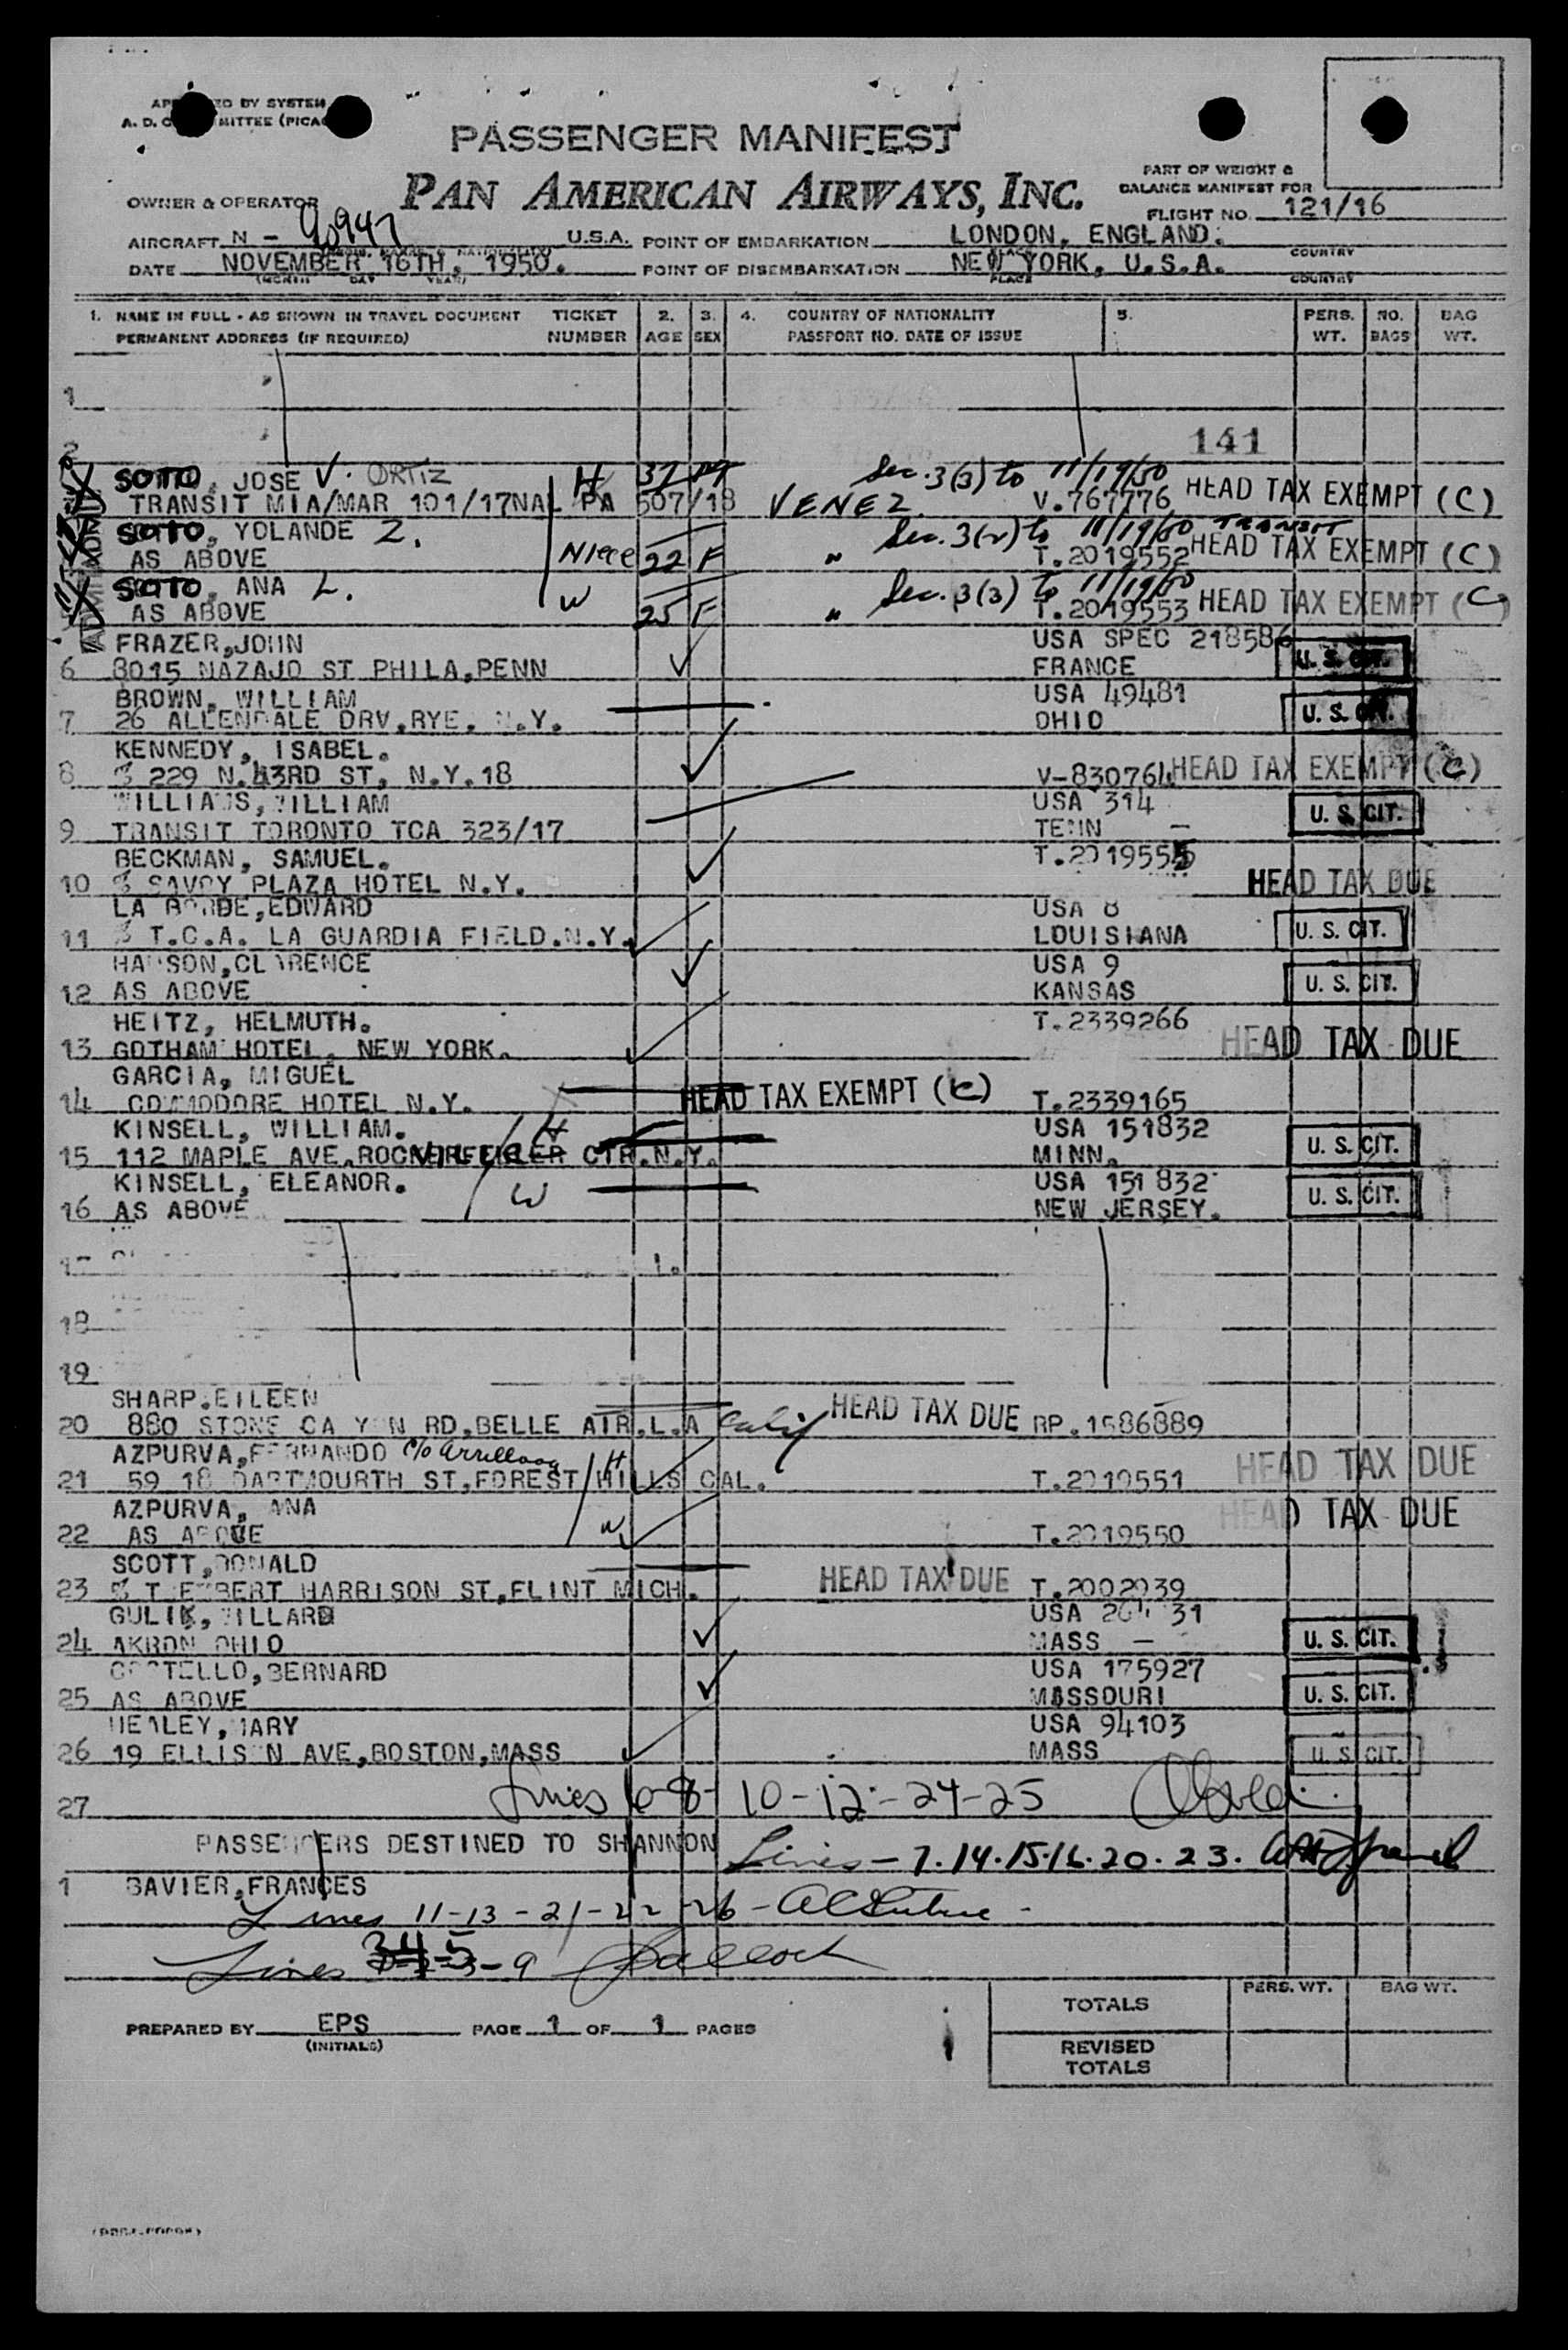 APPROVED BY SYSTEM
A. D. COMMITTEE (PICAO)
PASSENGER MANIFEST
PAN AMERICAN AIRWAYS, INC.
PART OF WEIGHT &
BALANCE MANIFEST FOR
FLIGHT NO. 121/16
OWNER & OPERATOR
AIRCRAFT N - 90947 U.S.A. POINT OF EMBARKATION LONDON, ENGLAND. COUNTRY
DATE NOVEMBER 16TH, 1950. POINT OF DISEMBARKATION NEW YORK, U.S.A.
(MONTH DAY YEAR) PLACE COUNTRY
1. NAME IN FULL - AS SHOWN IN TRAVEL DOCUMENT TICKET 2. 3. 4. COUNTRY OF NATIONALITY 5. PERS. NO. BAG
PERMANENT ADDRESS (IF REQUIRED) NUMBER AGE SEX PASSPORT NO. DATE OF ISSUE WT. BAGS WT.
1
2 141
SOTO, JOSE V. ORTIZ H 37 M Sec. 3(3) to 11/19/50
TRANSIT MIA/MAR 101/17NAL PA 507/18 VENEZ. V.767776 HEAD TAX EXEMPT (C)
SOTO, YOLANDE Z. Sec. 3(2) to 11/19/50 TRANSIT
AS ABOVE Niece 22 F " T.2019552 HEAD TAX EXEMPT (C)
SOTO, ANA L. Sec. 3(3) to 11/19/50
5 AS ABOVE W 25 F " T.2019553 HEAD TAX EXEMPT (C)
FRAZER,JOHN USA SPEC 218586
6 8015 NAZAJO ST PHILA,PENN FRANCE U. S. CIT.
BROWN, WILLIAM USA 49481
7 26 ALLENDALE DRV,RYE, N.Y. OHIO U. S. CIT.
KENNEDY, ISABEL.
8 % 229 N.43RD ST, N.Y.18 V-830764 HEAD TAX EXEMPT (C)
WILLIAMS,WILLIAM USA 314
9 TRANSIT TORONTO TCA 323/17 TENN - U. S. CIT.
BECKMAN, SAMUEL. T.2019555
10 % SAVOY PLAZA HOTEL N.Y. HEAD TAX DUE
LA BORDE,EDWARD USA 8
11 % T.C.A. LA GUARDIA FIELD.N.Y. LOUISIANA U. S. CIT.
HANSON,CLARENCE USA 9
12 AS ABOVE KANSAS U. S. CIT.
HEITZ, HELMUTH. T.2339266
13 GOTHAM HOTEL, NEW YORK. HEAD TAX DUE
GARCIA, MIGUEL
14 COMMODORE HOTEL N.Y. HEAD TAX EXEMPT (C) T.2339165
KINSELL, WILLIAM. H USA 151832
15 112 MAPLE AVE. CTR.N.Y. MINN. U. S. CIT.
KINSELL, ELEANOR. W USA 151832
16 AS ABOVE NEW JERSEY. U. S. CIT.
17
18
19
SHARP,EILEEN
20 880 STONE CANYON RD,BELLE AIR.L.A Calif HEAD TAX DUE RP.1586889
AZPURVA,FERNANDO c/o H
21 59 18 DARTMOURTH ST,FOREST HILLS CAL. T.2019551 HEAD TAX DUE
AZPURVA, ANA
22 AS ABOVE W T.2019550 HEAD TAX DUE
SCOTT,DONALD
23 HARRISON ST,FLINT MICH. HEAD TAX DUE T.2002939
GULIK,WILLARD USA
24 AKRON OHIO MASS - U. S. CIT.
COSTELLO,BERNARD USA 175927
25 AS ABOVE MASSOURI U. S. CIT.
HEALEY,MARY USA 94103
26 19 ELLISON AVE,BOSTON,MASS MASS U. S. CIT.
27 Lines 6-8-10-12-24-25
PASSENGERS DESTINED TO SHANNON Lines - 7.14.15.16.20.23.
1 BAVIER,FRANCES
Lines 11-13-21-22-26 -
Lines 3 4 5 - 9
TOTALS PERS. WT. BAG WT.
PREPARED BY EPS PAGE 1 OF 1 PAGES
(INITIALS)
REVISED
TOTALS